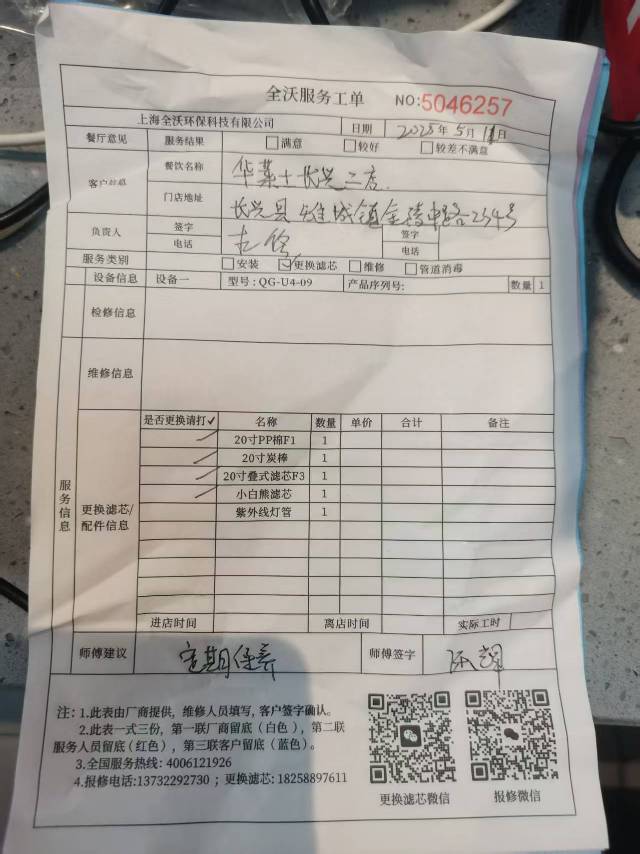 全沃服务工单 NO:5046257
上海全沃环保科技有限公司 日期 2025年5月11日
餐厅意见 服务结果 满意 较好 较差不满意
客户信息 餐饮名称 华莱士长兴二店
门店地址 长兴县雉城镇金陵中路254号
负责人 签字 签字
电话 电话
服务类别 安装 更换滤芯 维修 管道消毒
设备信息 设备一 型号:QG-U4-09 产品序列号: 数量 1
检修信息
维修信息
服务信息
更换滤芯/配件信息
是否更换请打✓ 名称 数量 单价 合计 备注
✓ 20寸PP棉F1 1
✓ 20寸炭棒 1
✓ 20寸叠式滤芯F3 1
✓ 小白熊滤芯 1
紫外线灯管 1
进店时间 离店时间 实际工时
师傅建议 定期保养 师傅签字
注:1.此表由厂商提供,维修人员填写,客户签字确认。
2.此表一式三份,第一联厂商留底(白色),第二联
服务人员留底(红色),第三联客户留底(蓝色)。
3.全国服务热线:4006121926
4.报修电话:13732292730;更换滤芯:18258897611
更换滤芯微信 报修微信